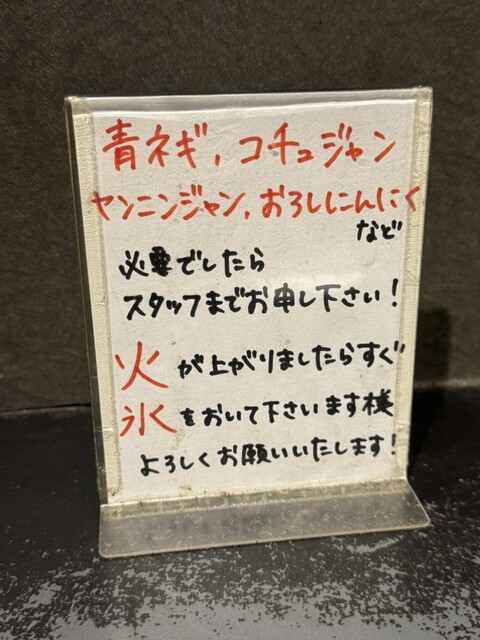 青ネギ, コチュジャン
ヤンニンジャン, おろしにんにく
など
必要でしたら
スタッフまでお申し下さい!
火が上がりましたらすぐ
氷をおいて下さいます様
よろしくお願いいたします!